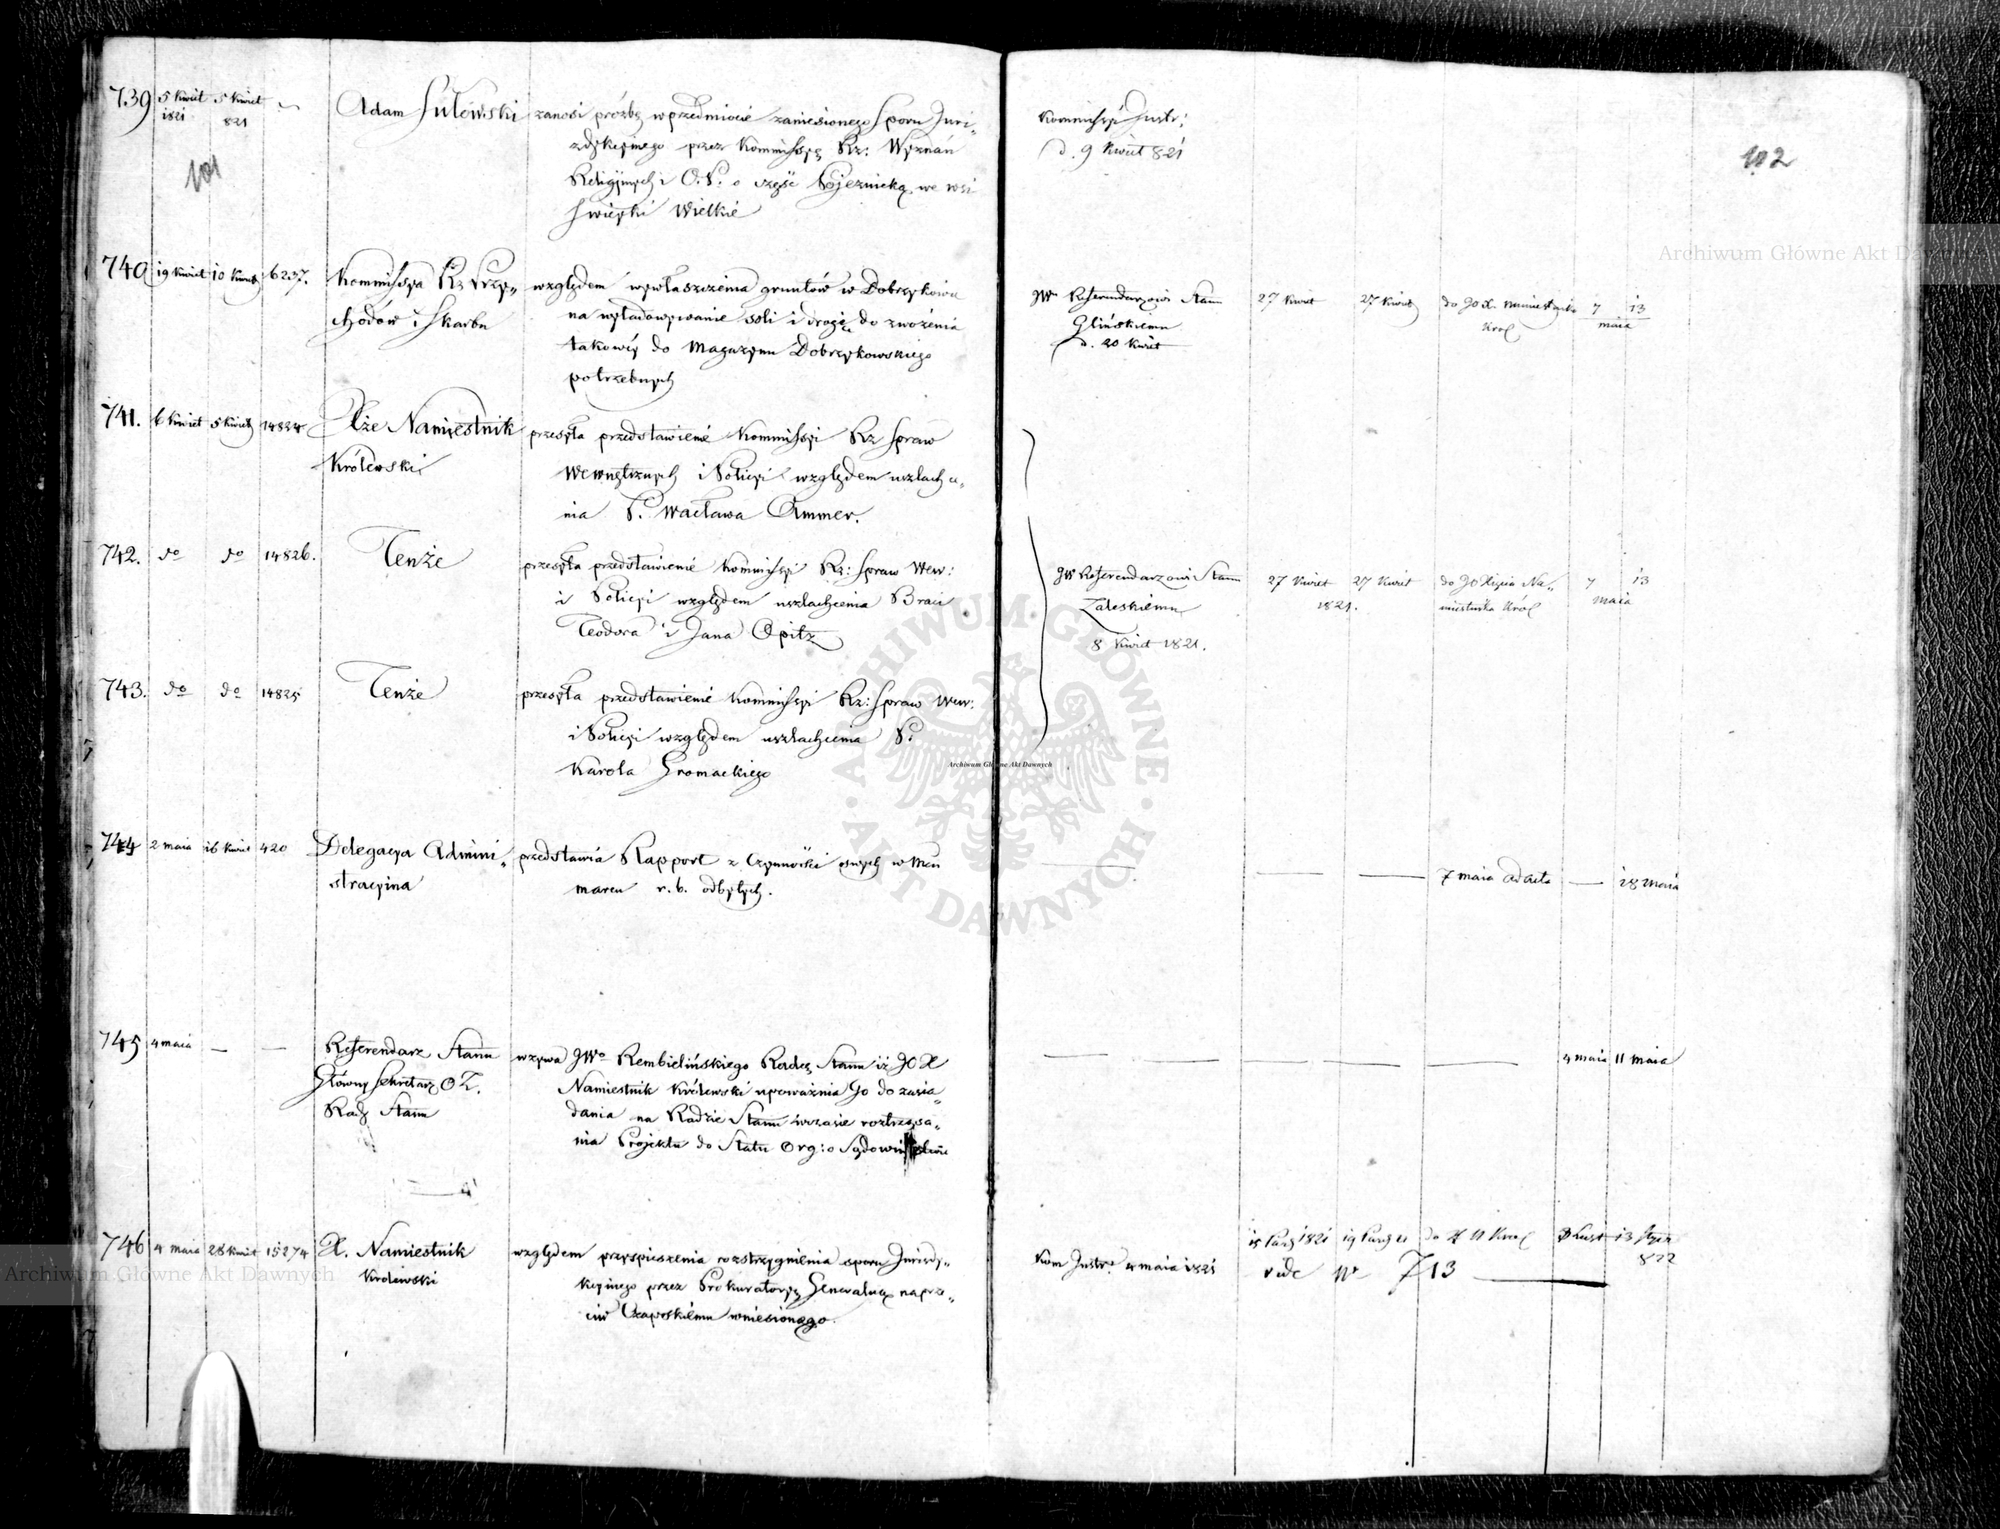 739 5 Kwiet 1821 5 Kwiet 821 Adam Sulewski zanosi prośbę w przedmiocie zaniesionego Sporu Juri-
zdykcyinego przez Kommissyę Rz: Wyznań
Religijnych i O. P. o część we wsi
Święcki Wielkie
101
Kommissyi Instr:
d. 9 Kwiet 821
102
740 19 Kwiet 10 Kwiet 6237. Kommissya Rz Przy-
chodów i Skarbu
względem wywłaszczenia gruntów w Dobrzykowie
na wyładowywanie soli i drogę do zwożenia
takowey do Magazynu Dobrzykowskiego
potrzebnych
JW Referendarzowi Stanu
Glińskiemu
d. 20 Kwiet
27 Kwiet 27 Kwiet do JO X. Namiestnika
Król
7 13
maia
741. 6 Kwiet 5 Kwiet 14824 Xże Namiestnik
Królewski
przesyła przedstawienie Kommissyi Rz Spraw
Wewnętrznych i Policyi względem uszlachce-
nia P. Wacława Ammer.
742. do do 14826. Tenże
przesyła przedstawienie Kommissyi Rz: Spraw Wew:
i Policyi względem uszlachcenia Braci
Teodora i Jana Opitz
JW Referendarzowi Stanu
Zaleskiemu
8 Kwiet 1821.
27 Kwiet 27 Kwiet
1821.
do JO Xięcia Na-
miestnika Król
7 13
maia
743. do do 14825 Tenże
przesyła przedstawienie Kommissyi Rz: Spraw Wew:
i Policyi względem uszlachcenia P.
Karola Gromackiego
744 2 maia 16 Kwiet 420 Delegacya Admini-
stracyina
przedstawia Rapport z Czynności swych w Mcu
marcu r. b. odbytych.
7 maia ad acta — 18 Maia
745 4 maia — — Referendarz Stanu
Główny Sekretarz
Rady Stanu
wzywa JWo Rembielińskiego Radcę Stanu iż JO X
Namiestnik Królewski upoważnia Go do zasia-
dania na Radzie Stanu w czasie roztrząsa-
nia Projektu do Statu Org: o Sądownictwie
4 maia 11 maia
746 4 maia 28 Kwiet 15274 X. Namiestnik
Królewski
względem przyspieszenia rozstrzygnienia sporu Jurisdy-
kcyinego przez Prokuratoryę Generalną naprze-
ciw Czapskiemu wniesionego.
Kom Instr. 4 maia 1821
15 Paźdz 1821 19 Paźdz 21 do X N Król 13 Stycz
822
vide Nr 713
Archiwum Główne Akt Dawnych
Archiwum Główne Akt Dawnych
Archiwum Główne Akt Dawnych
ARCHIWUM GŁÓWNE AKT DAWNYCH